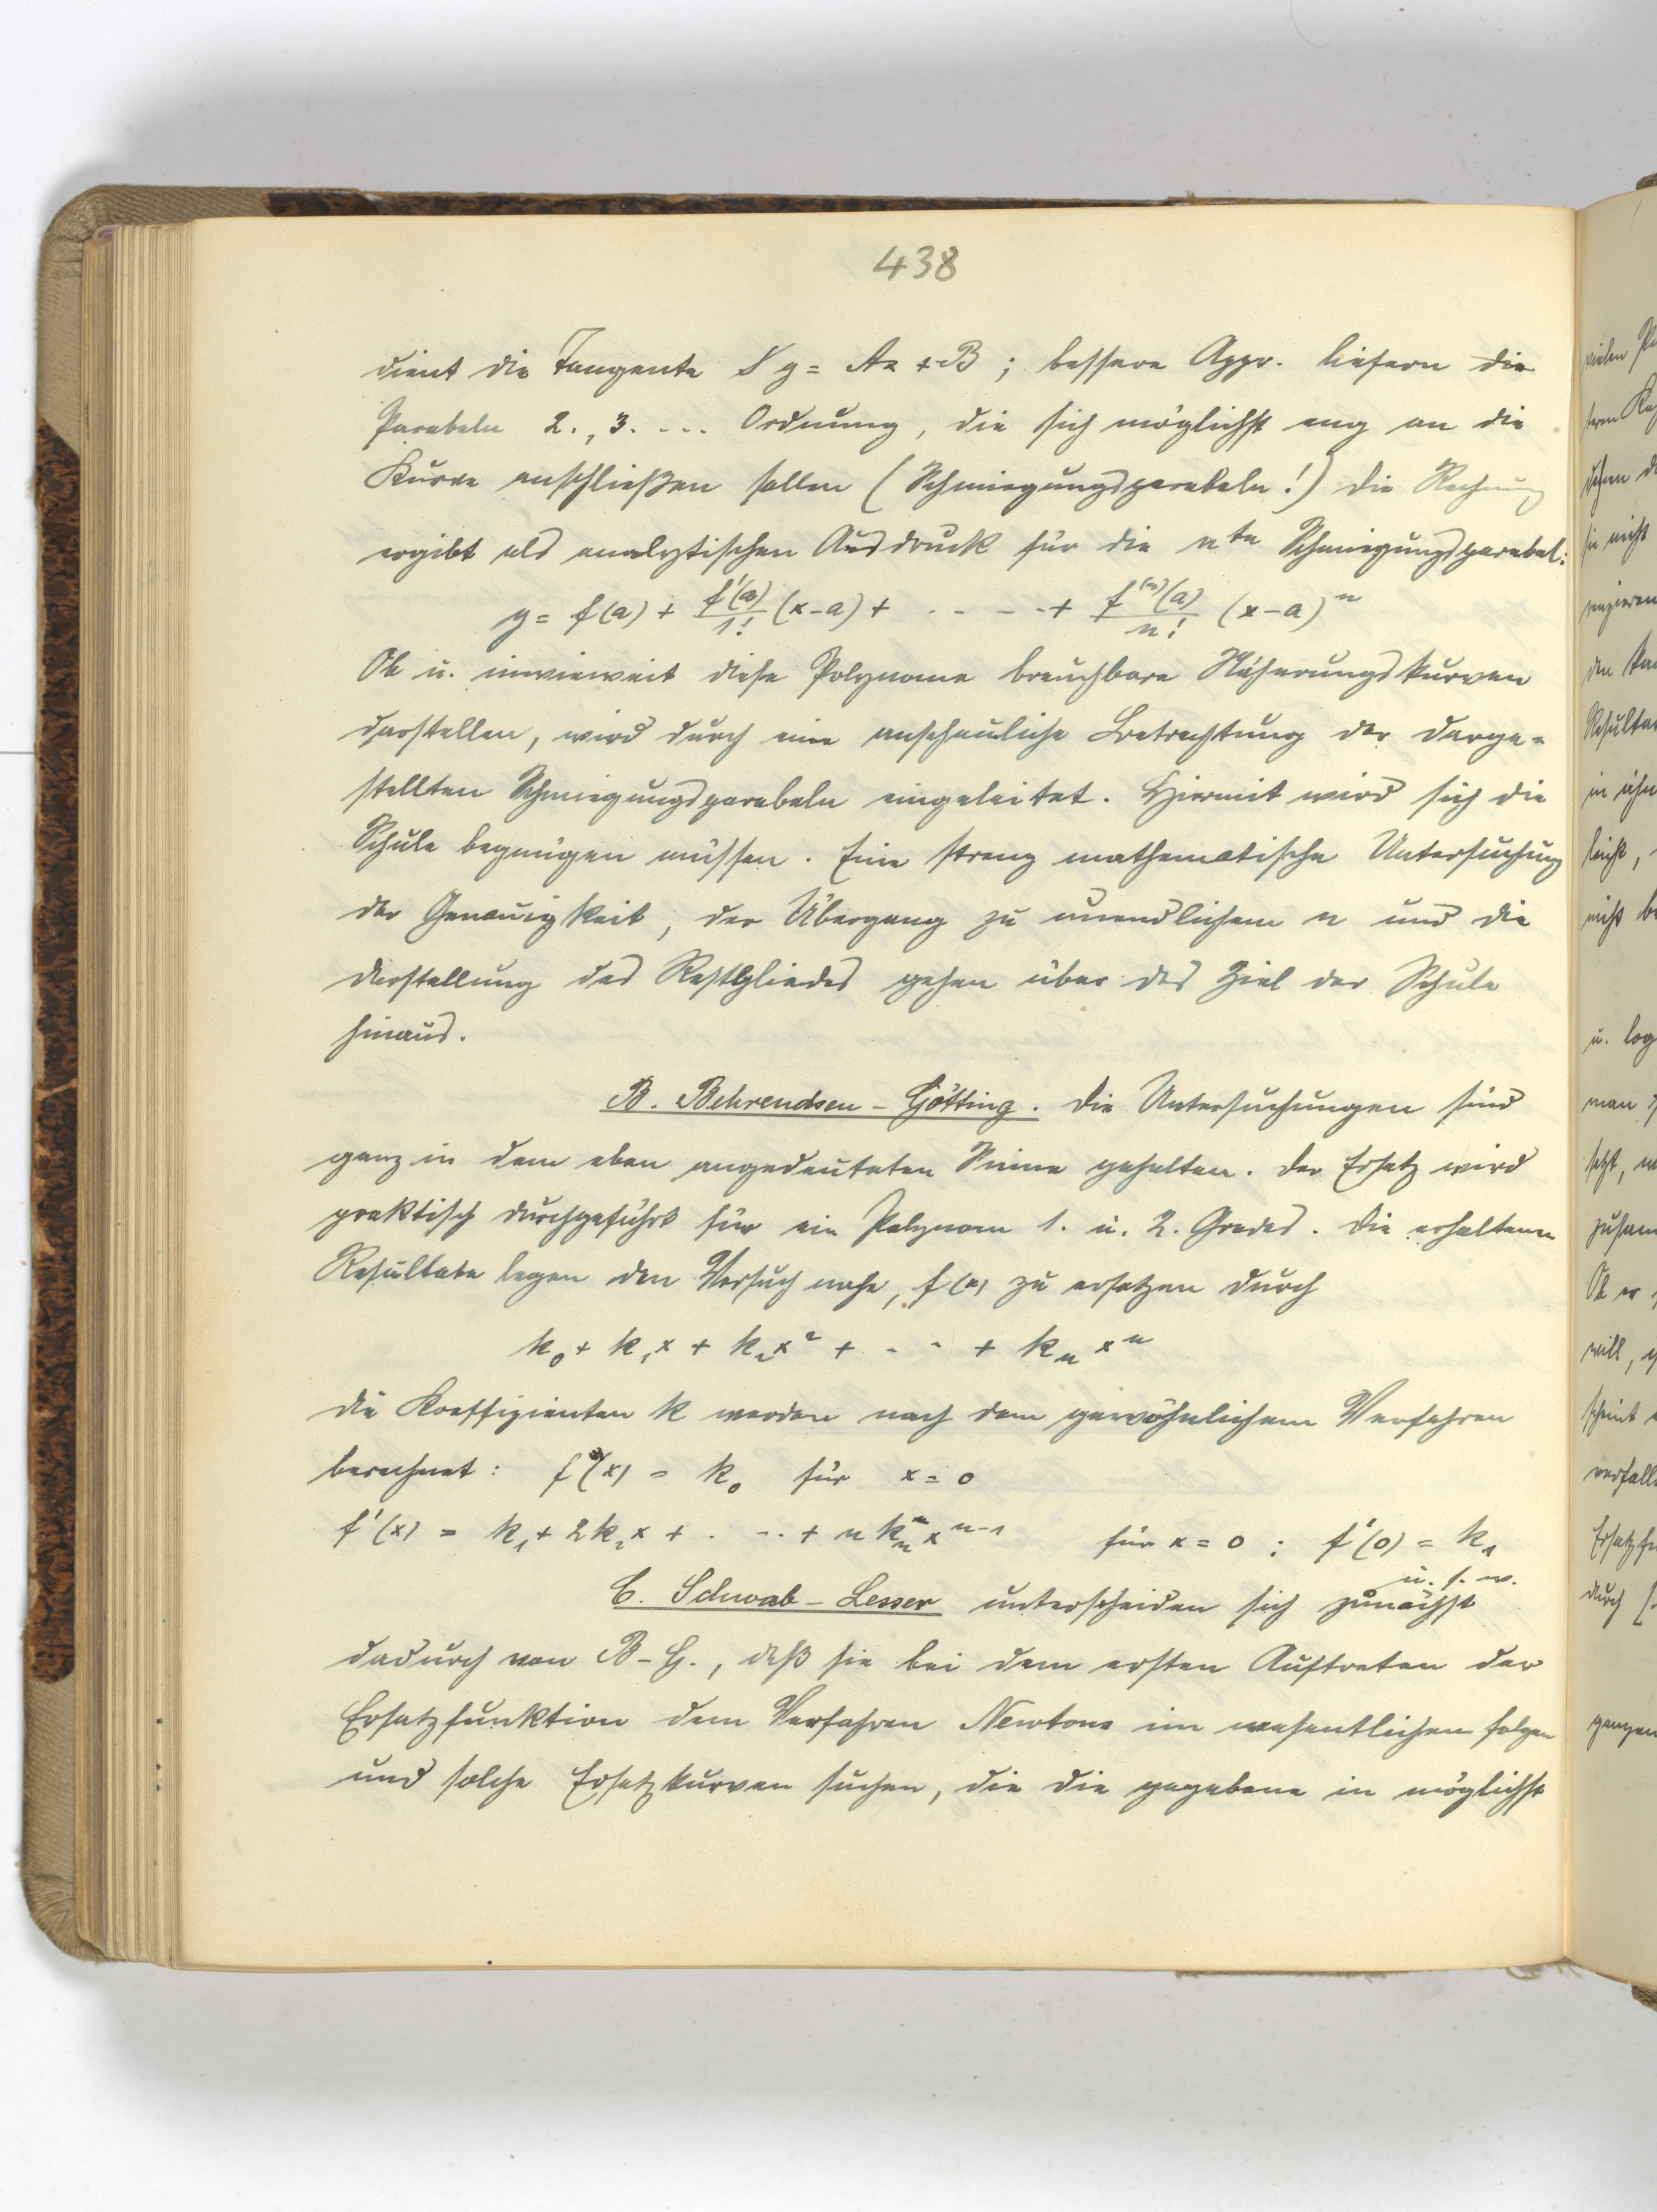 438
dient die Tangente y = Ax + B ; bessere Appr. liefern die
Parabeln 2., 3. ... Ordnung, die sich möglichst eng an die
Kurve anschließen sollen (Schmiegungsparabeln!) Die Rechnung
ergibt als analytischen Ausdruck für die nte Schmiegungsparabel:
y = f(a) + f'(a)/1! (x-a) + . - - - + f^(n)(a)/n! (x-a)^n
Ob u. inwieweit diese Polynome brauchbare Näherungskurven
darstellen, wird durch eine anschauliche Betrachtung der darge=
stellten Schmiegungsparabeln eingeleitet. Hiermit wird sich die
Schule begnügen müssen. Eine streng mathematische Untersuchung
der Genauigkeit, der Übergang zu unendlichem n und die
Darstellung des Restgliedes gehen über das Ziel der Schule
hinaus.
B. Behrendsen - Götting. Die Untersuchungen sind
ganz in dem eben angedeuteten Sinne gehalten. Der Ersatz wird
praktisch durchgeführt für ein Polynom 1. u. 2. Grades. Die erhaltenen
Resultate legen den Versuch nahe, f(x) zu ersetzen durch
k₀ + k₁x + k₂x² + . - - + kₙxⁿ
Die Koeffizienten k werden nach dem gewöhnlichem Verfahren
berechnet: f(x) = k₀ für x = 0
f'(x) = k₁ + 2k₂x + . - .. + n kₙ xⁿ⁻¹ für x = 0 : f'(0) = k₁
u. s. w.
C. Schwab - Lesser unterscheiden sich zunächst
dadurch von B-G., daß sie bei dem ersten Auftreten der
Ersatzfunktion dem Verfahren Newtons im wesentlichen folgen
und solche Ersatzkurven suchen, die die gegebene in möglichst